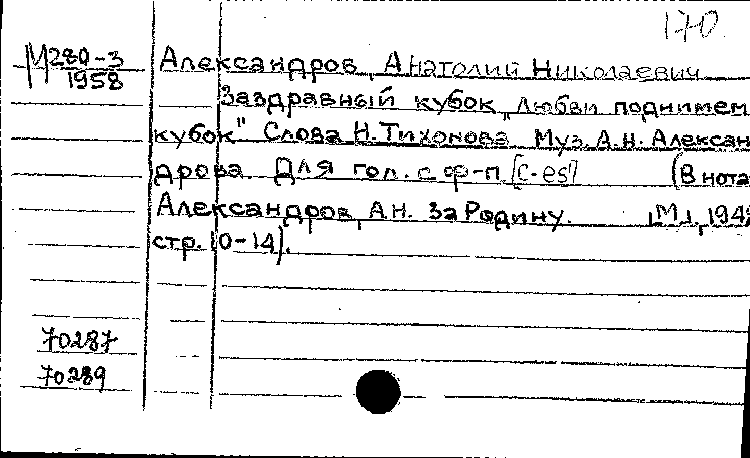 170.
М280-3
1958
Александров, Анатолий Николаевич
Заздравный кубок "Любви поднимем
кубок" Слова Н. Тихонова Муз. А.Н. Алексан
дрова Для гол. с ф-п [c-es]
(В нота
Александров, А.Н. За Родину. [М.], 194
стр. 10-14).
70287
70289